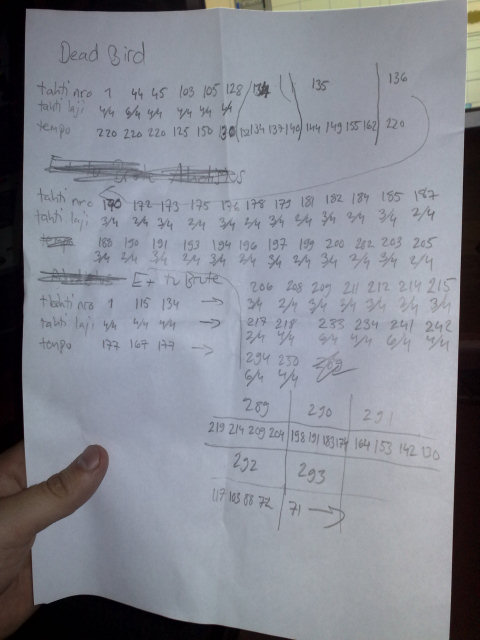 Dead Bird
tahti nro 1 44 45 103 105 128 134 135 136
tahti laji 4/4 4/4 4/4 4/4 4/4
tempo 220 220 220 125 150 130 132 134 137 140 144 149 155 162 220
tahti nro 170 172 173 175 176 178 179 181 182 184 185 187
tahti laji 3/4 2/4 3/4 2/4 3/4 2/4 3/4 2/4 3/4 2/4 3/4 2/4
188 190 191 193 194 196 197 199 200 202 203 205
3/4 2/4 3/4 2/4 3/4 2/4 3/4 2/4 3/4 2/4 3/4 2/4
Et tu Brute
206 208 209 211 212 214 215
3/4 2/4 3/4 3/4 3/4 3/4
tahti nro 1 115 134 →
217 218 233 234 241 242
tahti laji 4/4 4/4 4/4 →
2/4 4/4 6/4 4/4 6/4 4/4
tempo 177 167 177 →
294 250
6/4 4/4
289 290 291
219 214 209 204 198 191 183 174 164 153 142 130
292 293
117 103 88 72 71 →